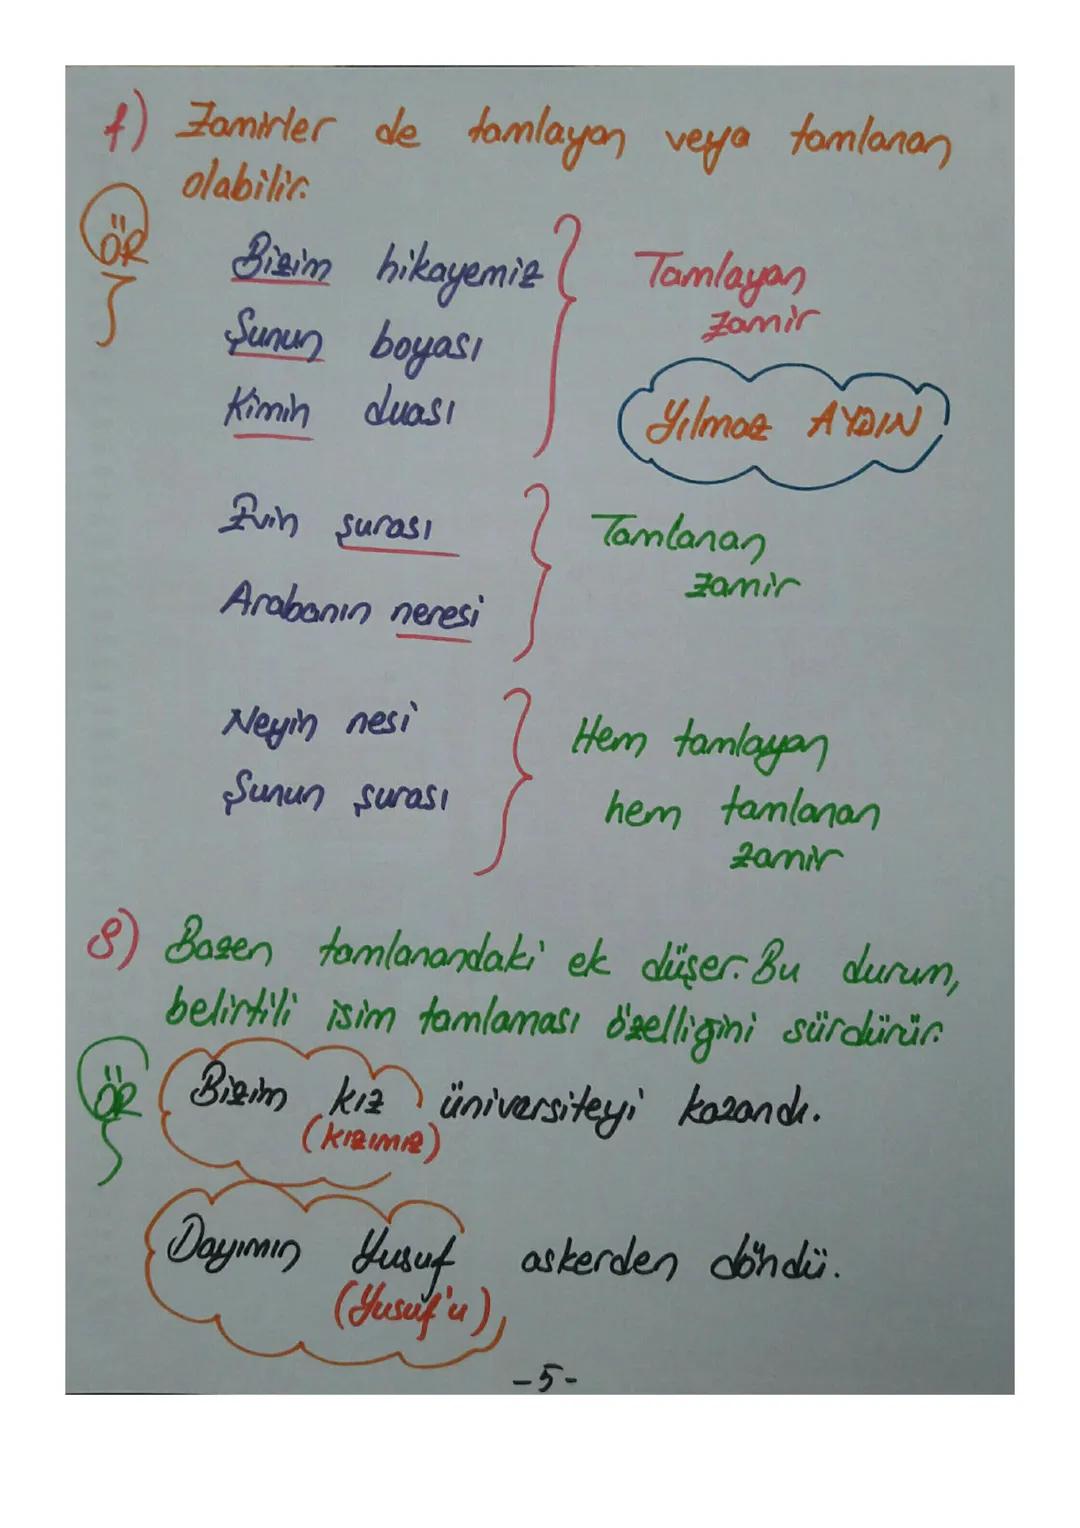 f) Zamirler de tamlayan veya tamlanan
olabilir.
ÖR
Bizim hikayemiz
Şunun boyası
Kimin duası
Tamlayan
zamir
Yılmaz AYDIN
Evin şurası
Arabanın neresi
Tamlanan
zamir
Neyin nesi
Şunun şurası
Hem tamlayan
hem tamlanan
zamir
g) Bazen tamlanandaki ek düşer. Bu durum,
belirtili isim tamlaması özelliğini sürdürür.
ÖR
Bizim kız üniversiteyi kazandı.
(kızımız)
Dayımın Yusuf askerden döndü.
(Yusuf'u)
-5-